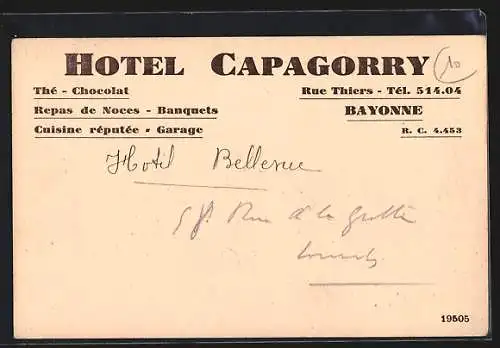 HOTEL CAPAGORRY
10
Thé - Chocolat
Rue Thiers - Tél. 514.04
Repas de Noces - Banquets
BAYONNE
Cuisine réputée - Garage
R. C. 4.453
Hotel Bellevue
Rue de la Grotte
Lourdes
19505